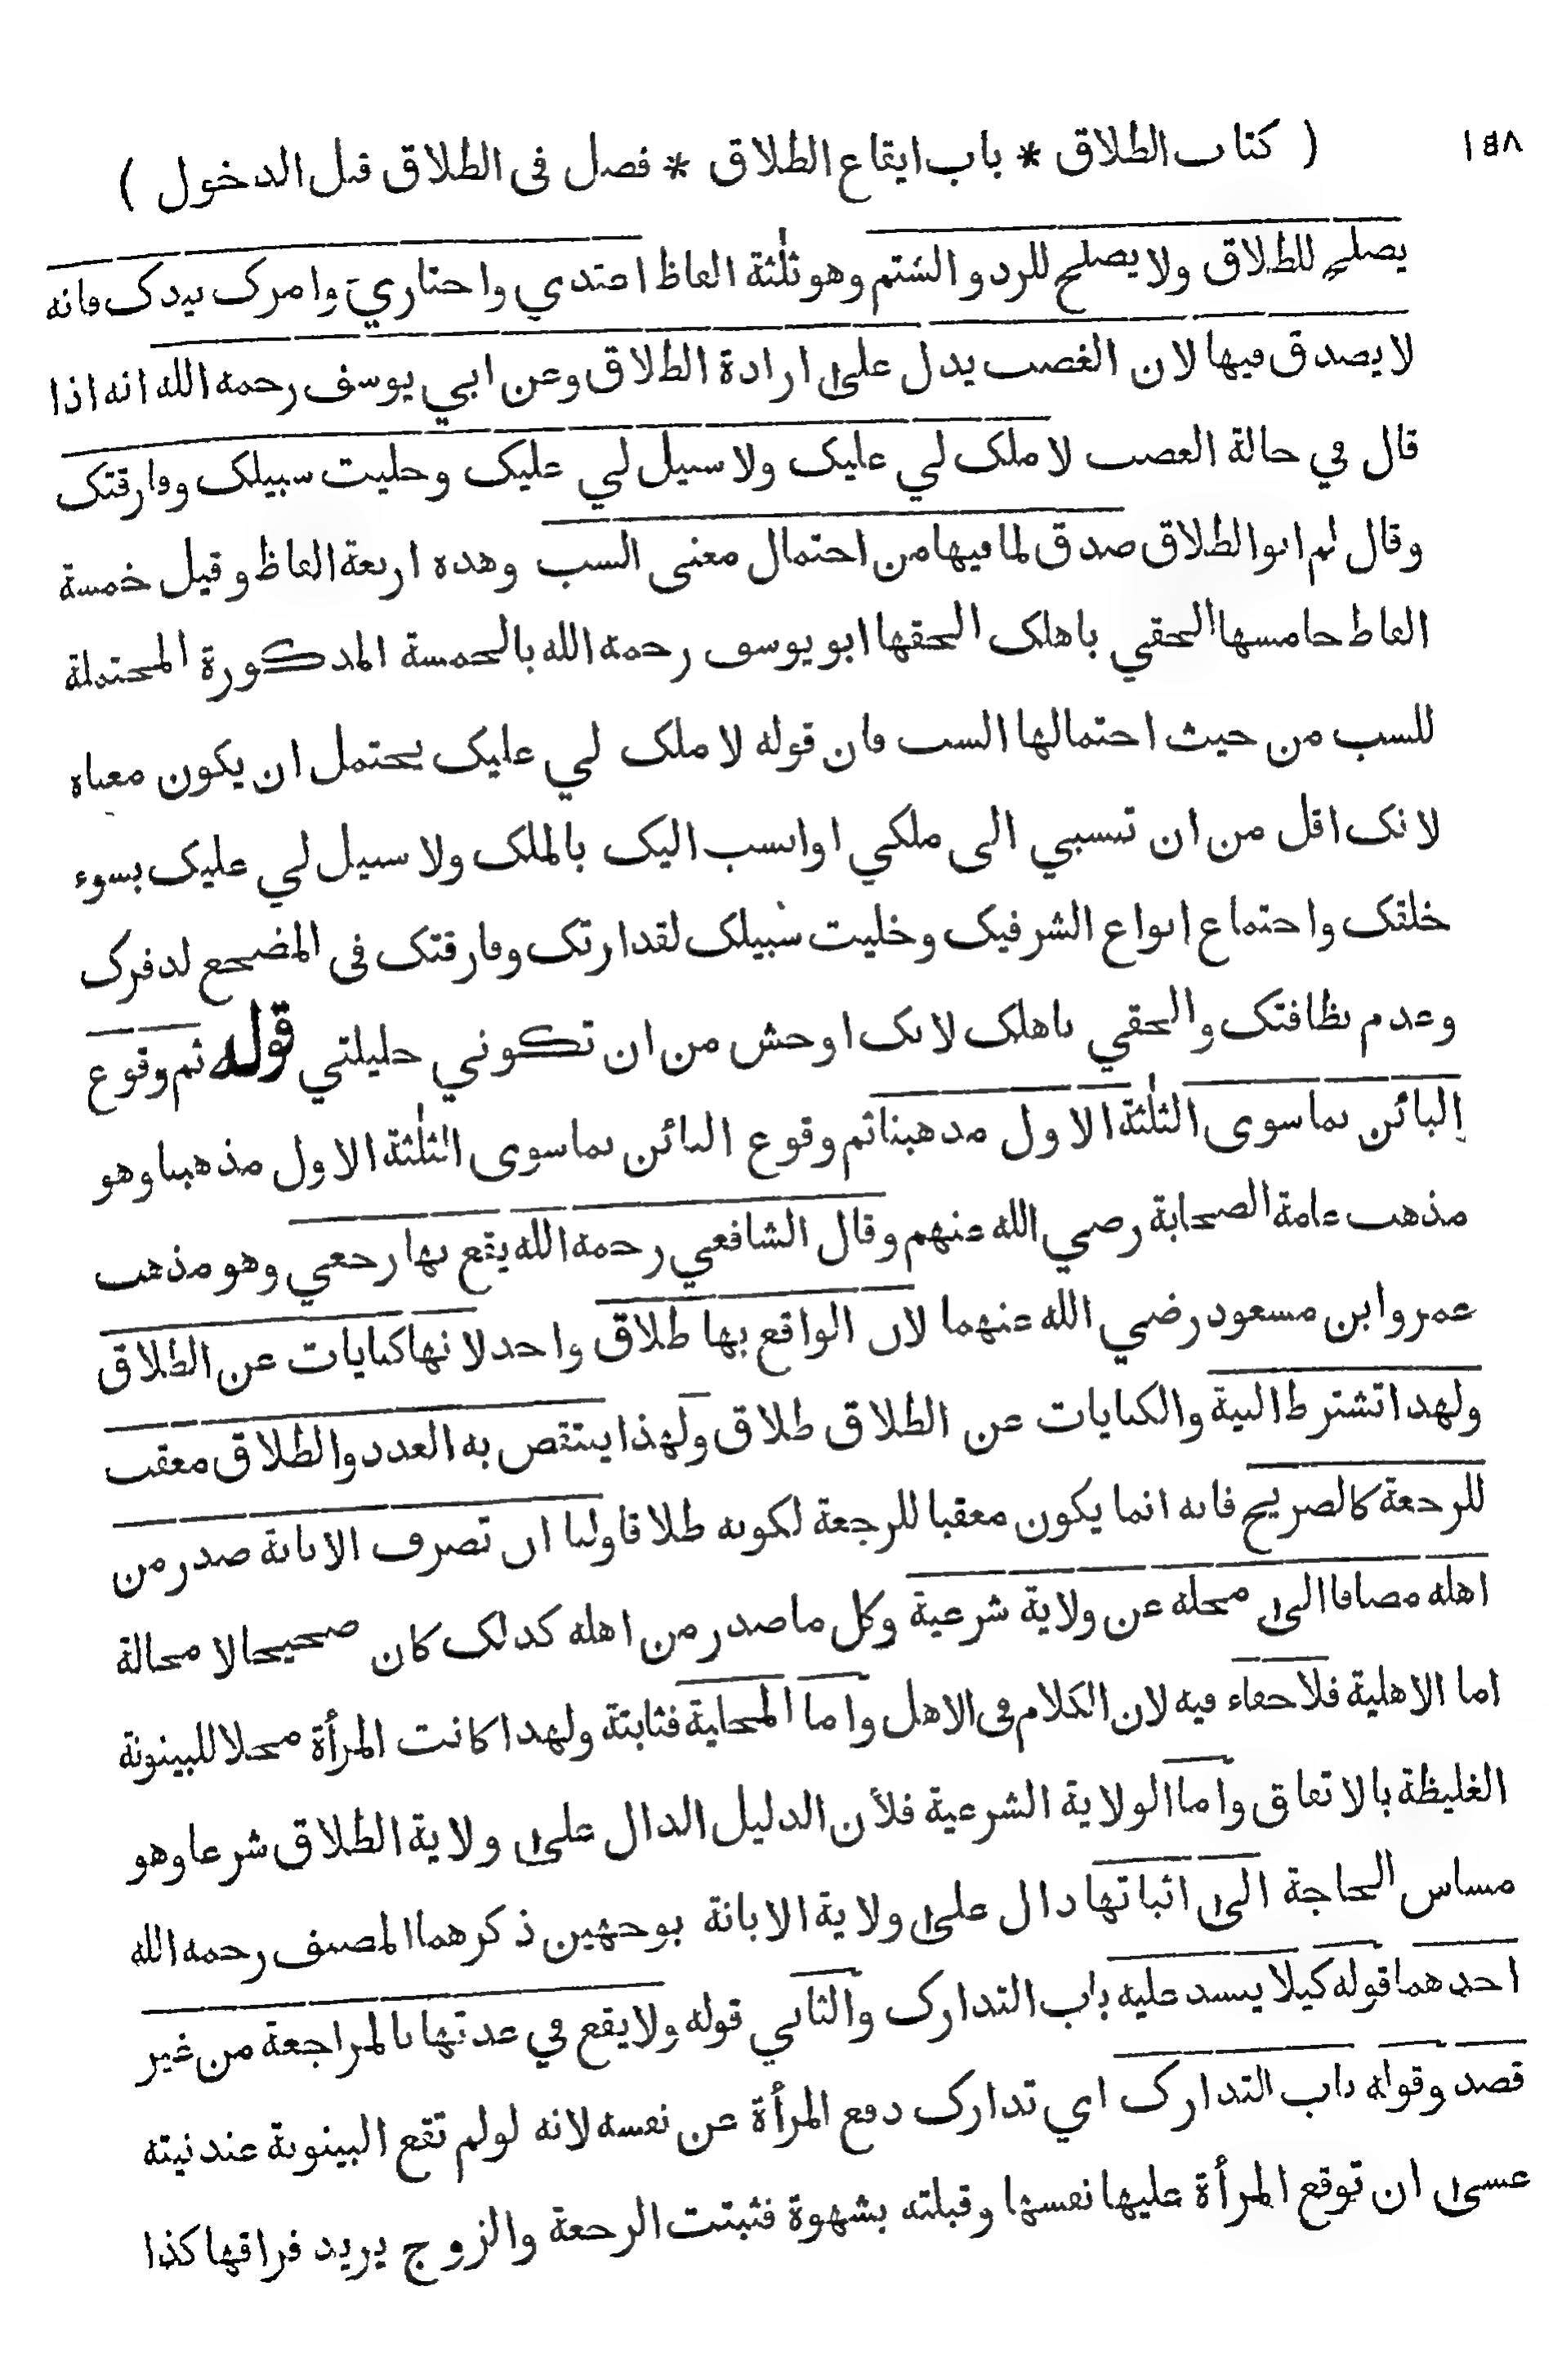 ( كتاب الطلاق * باب ايقاع الطلاق * فصل فى الطلاق قبل الدخول )
يصلح للطلاق ولا يصلح للرد والشتم وهو ثلثة الفاظ اعتدي واختاري وامرك بيدك فانه
لا يصدق فيها لان الغضب يدل على ارادة الطلاق وعن ابي يوسف رحمه الله انه اذا
قال في حالة الغضب لا ملك لي عليك ولا سبيل لي عليك وخليت سبيلك وفارقتك
وقال لم انو الطلاق صدق لما فيها من احتمال معنى السب وهذه اربعة الفاظ وقيل خمسة
الفاظ خامسها الحقي باهلك الحقها ابو يوسف رحمه الله بالخمسة المذكورة المحتملة
للسب من حيث احتمالها السب فان قوله لا ملك لي عليك يحتمل ان يكون معناه
لانك اقل من ان تنسبي الى ملكي او انسب اليك بالملك ولا سبيل لي عليك بسوء
خلقك واجتماع انواع الشر فيك وخليت سبيلك لقدارتك وفارقتك فى المضجع لدفرك
وعدم نظافتك والحقي باهلك لانك اوحش من ان تكوني حليلتي قوله ثم وقوع
البائن بما سوى الثلثة الاول مذهبنا ثم وقوع البائن بما سوى الثلثة الاول مذهبنا وهو
مذهب عامة الصحابة رضي الله عنهم وقال الشافعي رحمه الله يقع بها رجعي وهو مذهب
عمر وابن مسعود رضي الله عنهما لان الواقع بها طلاق واحد لانها كنايات عن الطلاق
ولهذا تشترط النية والكنايات عن الطلاق طلاق ولهذا ينتقص به العدد والطلاق معقب
للرجعة كالصريح فانه انما يكون معقبا للرجعة لكونه طلاقا ولنا ان تصرف الابانة صدر من
اهله مضافا الى محله عن ولاية شرعية وكل ما صدر من اهله كذلك كان صحيحا لا محالة
اما الاهلية فلا خفاء فيه لان الكلام فى الاهل واما المحلية فثابتة ولهذا كانت المرأة محلا للبينونة
الغليظة بالاتفاق واما الولاية الشرعية فلأن الدليل الدال على ولاية الطلاق شرعا وهو
مساس الحاجة الى اثباتها دال على ولاية الابانة بوجهين ذكرهما المصنف رحمه الله
احدهما قوله كيلا ينسد عليه باب التدارك والثاني قوله ولا يقع في عدتها بالمراجعة من غير
قصد وقوله باب التدارك اي تدارك دفع المرأة عن نفسه لانه لو لم تقع البينونة عند نيته
عسى ان توقع المرأة عليها نفسها وقبلته بشهوة فثبتت الرجعة والزوج يريد فراقها كذا